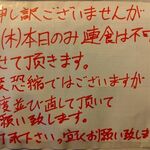 申し訳ございませんが
(木)本日のみ連食は不可
せて頂きます。
変恐縮ではございますが
度並び直して頂いて
願い致します。
了承下さい。宜しくお願い致します